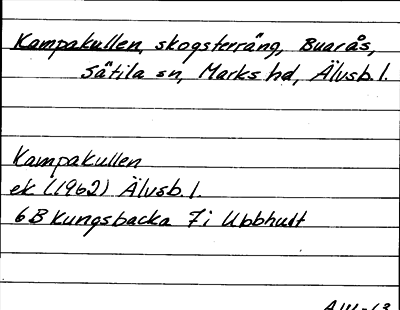 Kampakullen, skogsterräng, Buarås,
Sätila sn, Marks hd, Älvsb. l.
Kampakullen
ek (1962) Älvsb. l.
6B Kungsbacka 7i Ubbhult